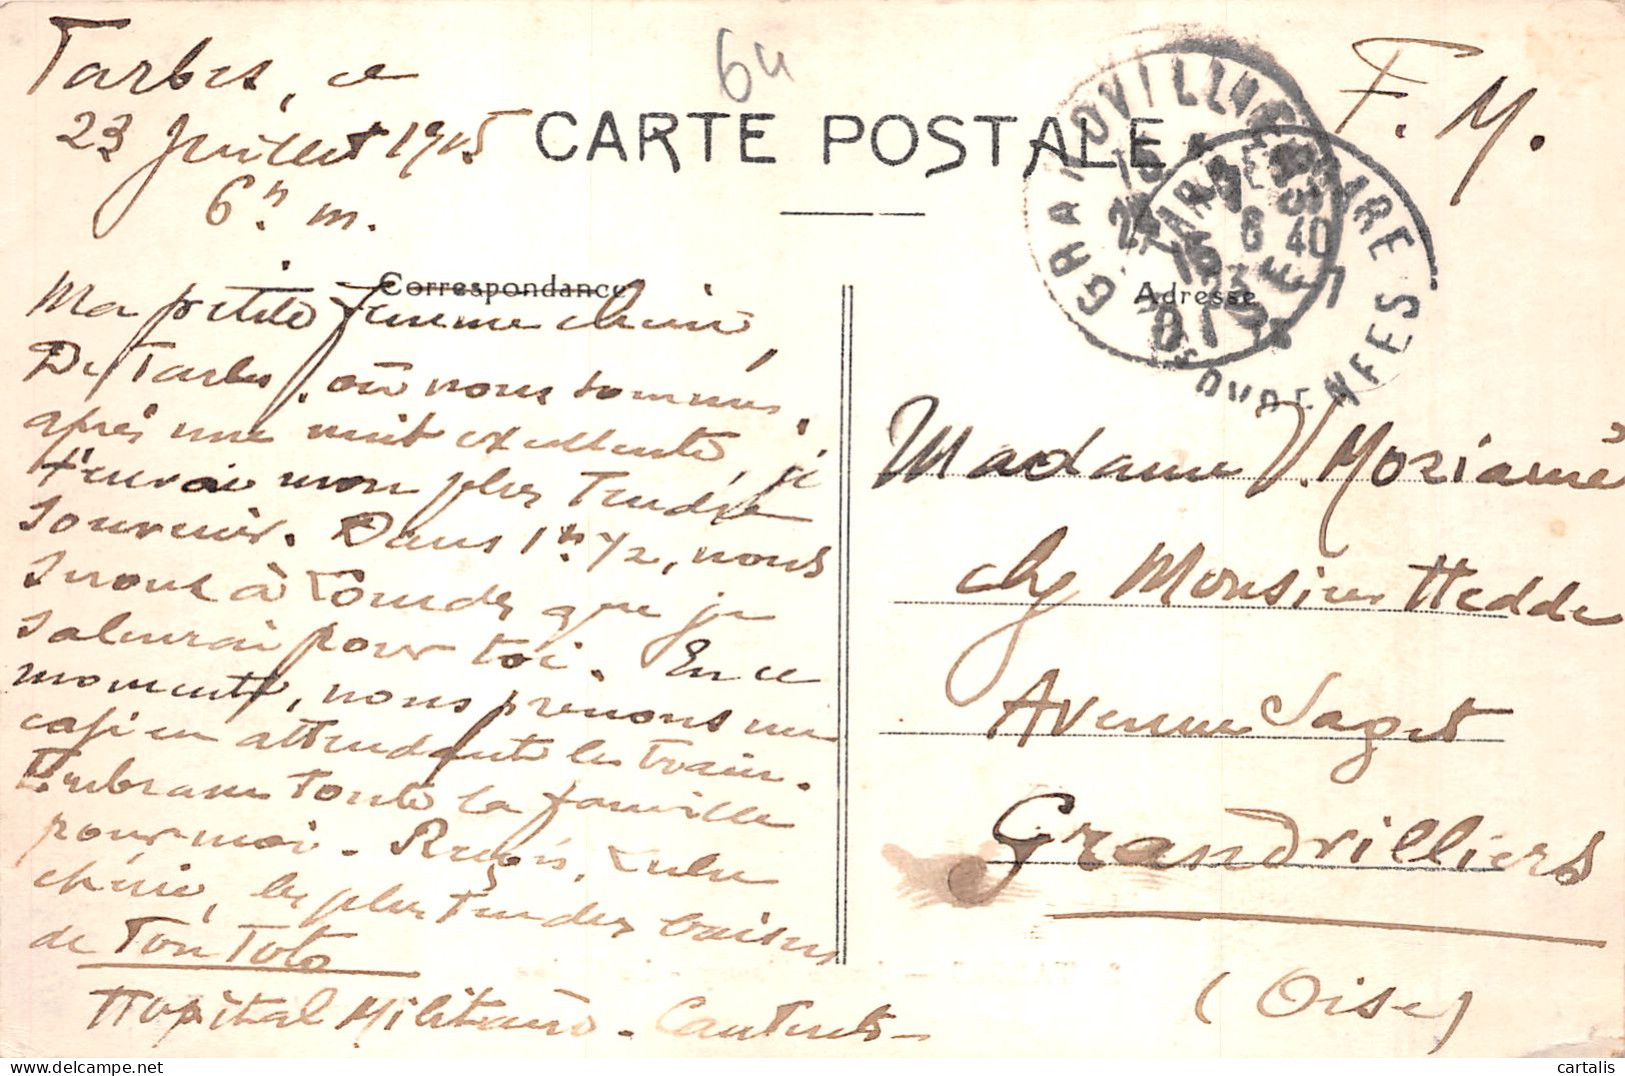 Tarbes, ce
23 Juillet 1915
6h m.
64
CARTE POSTALE
F. M.
Correspondance
Adresse
GRANDVILLIERS
OISE
TARBES
6 40
23 - 7
15
HTES PYRENEES
Ma petite femme chérie,
De Tarbes, où nous sommes,
après une nuit excellente, je
t'envoie mon plus tendre
souvenir. Dans 1h 1/2, nous
serons à Lourdes que je
saluerai pour toi. En ce
moment, nous prenons un
café en attendant le train.
Embrasse toute la famille
pour moi. Reçois, Lulu
chérie, les plus tendres baisers
de Ton Toto
Hôpital Militaire - Cauterets -
Madame V. Moziamé
chez Monsieur Hedde
Avenue Saget
Grandvilliers
(Oise)
cartalis